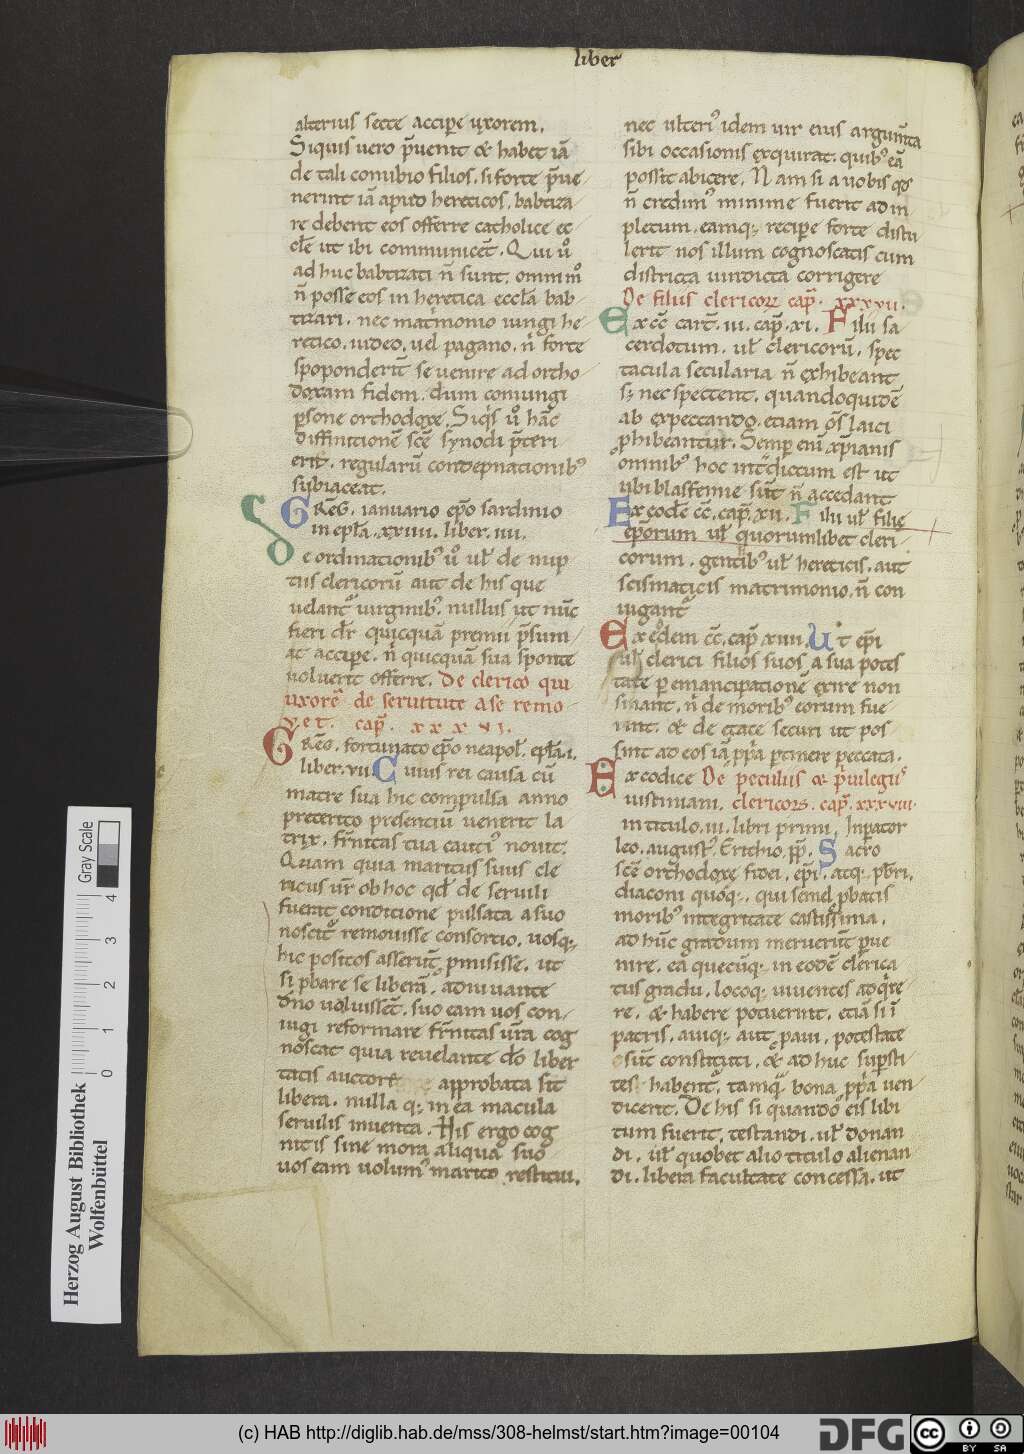 liber
alterius secte accipe uxorem.
Siquis uero p̄uenit & habet iā
de tali conubio filios. si forte p̄ue
nerint iā aput hereticos. babtiza
re debent eos offerre catholice ec
cłe ut ibi communicet̄. Qui ů
ad huc babtizati n̄ sunt. omnim̊
n̄ posse eos in heretica eccła bab
tizari. nec matrimonio iungi he
retico. iudeo. uel pagano. n̄ forte
spoponderit̄ se uenire ad ortho
doxam fidem. dum coniungi
ꝑsone orthodoxe. Siqs ů hāc
diffinitionē scē synodi p̄teri
erit. regularū condepnationibꝰ
subiaceat.
GREG̅. ianuario ep̅o sardinio
in epła. xxiiii. liber. iiii.
De ordinationibꝰ ů uł de nup
tiis clericorū aut de his que
uelant᷑ uirginibꝰ. nullus ut nūc
fieri dr̄ quicquā premii p̄sum
at accipe. n̄ quicquā sua sponte
uoluerit offerre. De clerico qui
uxorē de seruitute a se remo
uet. cap̄. xxxvi.
GREG̅. fortunato ep̅o neapoł. epła. i.
liber. vii. Cuius rei causa cū
matre sua hic compulsa anno
preterito predenciū uenerit la
trix. fr̄nitas tua cautiꝰ nouit.
Quam quia maritus suus cle
ricus ur̄ ob hoc qđ de seruili
fuerat conditione pulsata a suo
noscit᷑ remouisse consortio. uosqꝫ
hic positos asserit ꝓmisisse. ut
si ꝓbare se liberā. adiuuante
dn̄o uoluisset̄. suo eam uos con
iugi reformare fr̄nitas ur̄a cog
noscat quia reuelante dō liber
tatis auctore approbata sit
libera. nulla qꝫ in ea macula
seruilis inuenta. His ergo cog
nitis sine mora aliqua suo
uos eam uolumꝰ marito restitui.
nec ulteriꝰ idem uir eius argum̄ta
sibi occasionis exquirat. quibꝰ eā
possit abicere. Nam si a uobis qđ
n̄ credimꝰ minime fuerit ad in
pletum. eamqꝫ recipe forte distu
lerit nos illum cognoscatis cum
districta uindicta corrigere
De filiis clericoꝝ cap̄. xxxvii.
Ex cc̄ cart̄. iii. cap̄. xi. Filii sa
cerdotum. uł clericorū. spec
tacula secularia n̄ exhibeant
sꝫ nec spectent. quandoquidē
ab expectando. etiam oms laici
ꝓhibeantur. Semꝑ enī xp̄ianis
omnibꝰ hoc int̄dictum est ut
ubi blasfemie sūt n̄ accedant
Ex eodē cc̄. cap̄. xii. Filii uł filie
ep̅orum uł quorumlibet cleri
corum. gentibꝰ uł hereticis. aut
scismaticis matrimonio. n̄ con
iugant᷑
Ex eodem cc̄. cap̄. xiiii. Ut ep̅i
uł clerici filios suos. a sua potes
tate ꝑ emancipationē exire non
sinant. n̄ de moribꝰ eorum fue
rint. & de etate securi ut pos
sint ad eos iā ꝓpria ꝑtinere peccata.
Ex codice De peculiis & p̄uilegiis
iustiniani. clericoꝝ. cap̄. xxxviii.
in titulo. iii. libri primi. Inperator
leo. august᷑. Erichio. pp̄. Sacro
scē orthodoxe fidei. ep̅i. atqꝫ pb̅ri.
diaconi quoqꝫ. qui semel ꝓbatis
moribꝰ integritate castissima.
ad hūc gradum meruerūt ꝑue
nire. ea quecūqꝫ in eodē clerica
tus gradu. locoqꝫ uiuentes adqire
re. & habere potuerint. etiā si ī
patris. auiqꝫ aut ꝓaui. potestate
sūt constituti. & ad huc suꝑsti
tes habent᷑. tamq̄ bona ꝓpria uen
dicent. De his si quando eis libi
tum fuerit. testandi. uł donan
di. uł quobet alio titulo alienan
di. libera facultate concessa. ut
Herzog August Bibliothek
Wolfenbüttel
Gray Scale
0 1 2 3 4
(c) HAB http://diglib.hab.de/mss/308-helmst/start.htm?image=00104
DFG
cc
BY SA